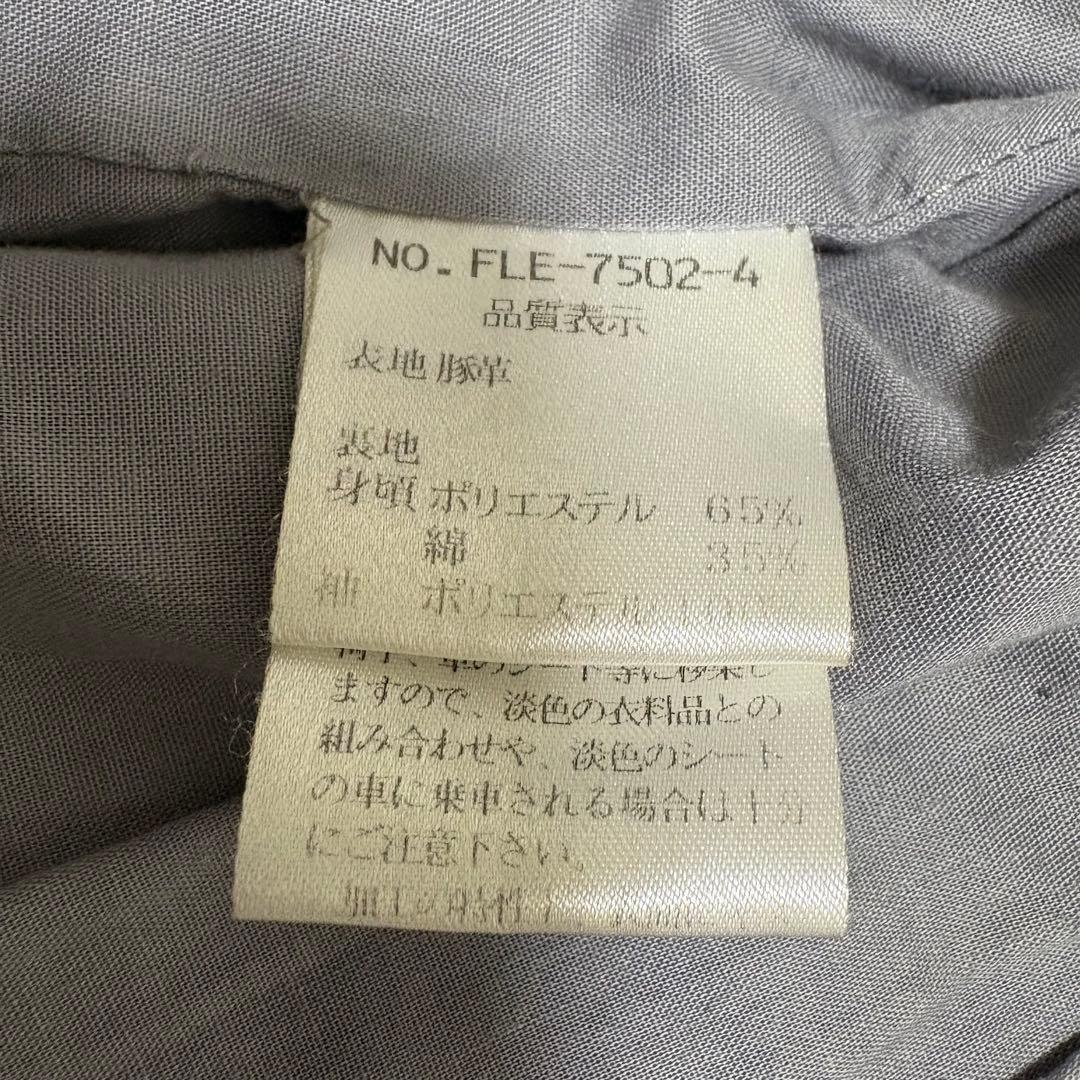 NO. FLE-7502-4
品質表示
表地 豚革
裏地
身頃 ポリエステル 65%
綿 35%
袖 ポリエステル 100%
ますので、淡色の衣料品との
組み合わせや、淡色のシート
の車に乗車される場合は十分
にご注意下さい。